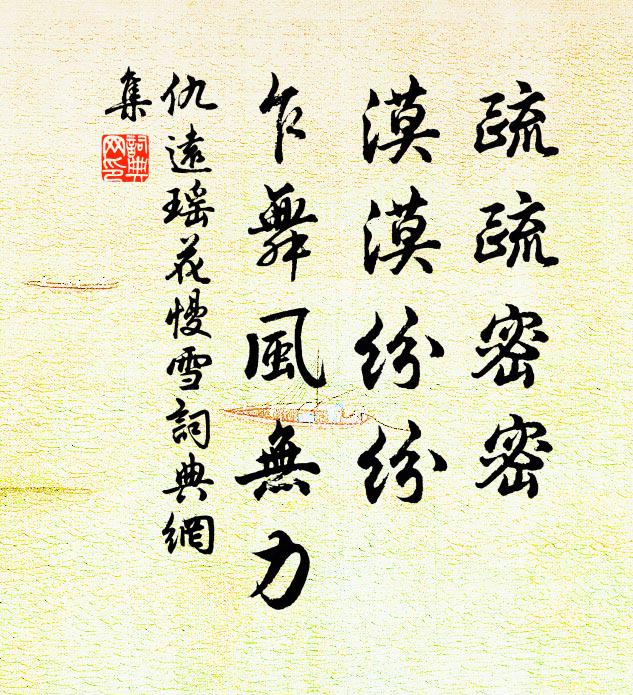 疏疏密密
漠漠紛紛
乍舞風無力
仇遠瑶花慢雪詞典網
集
詞典
网印